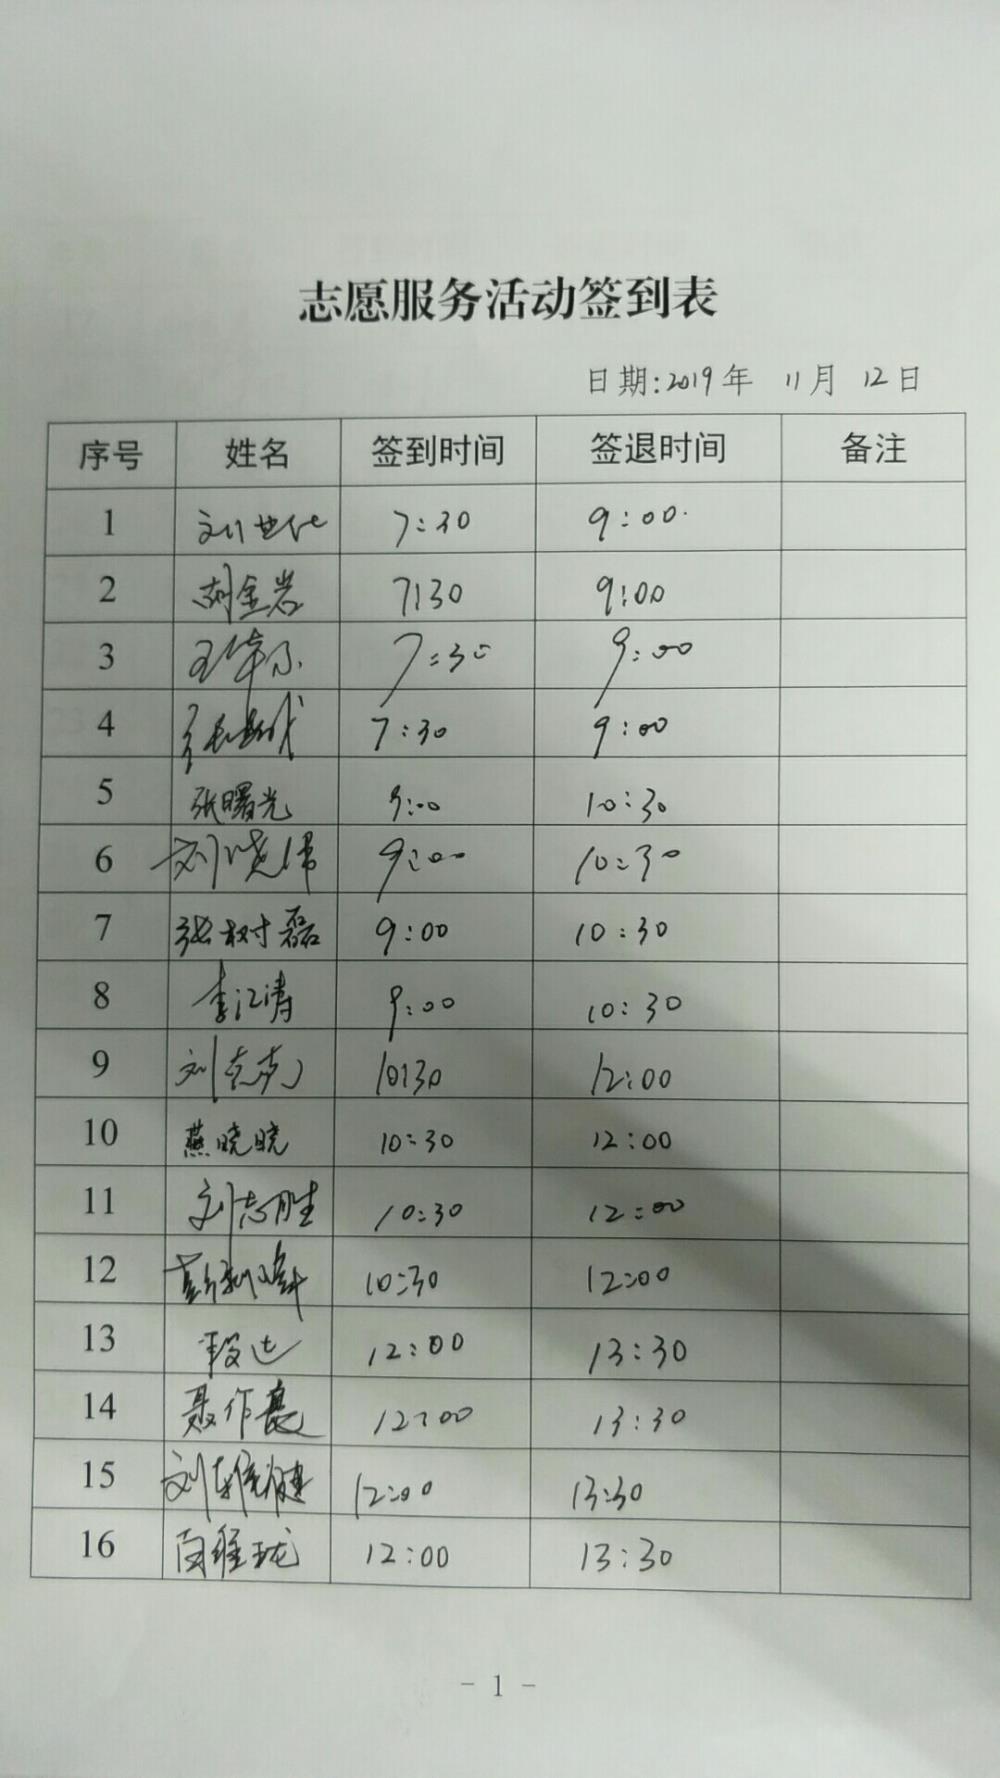 志愿服务活动签到表
日期:2019年 11月 12日
序号 姓名 签到时间 签退时间 备注
1 刘世 7:30 9:00
2 胡金岩 7:30 9:00
3 王 7:30 9:00
4 张 7:30 9:00
5 张曙光 9:00 10:30
6 刘晓伟 9:00 10:30
7 张树磊 9:00 10:30
8 李江涛 9:00 10:30
9 刘克克 10:30 12:00
10 燕晓晓 10:30 12:00
11 刘志胜 10:30 12:00
12 10:30 12:00
13 段 12:00 13:30
14 聂作亮 12:00 13:30
15 刘 12:00 13:30
16 12:00 13:30
- 1 -